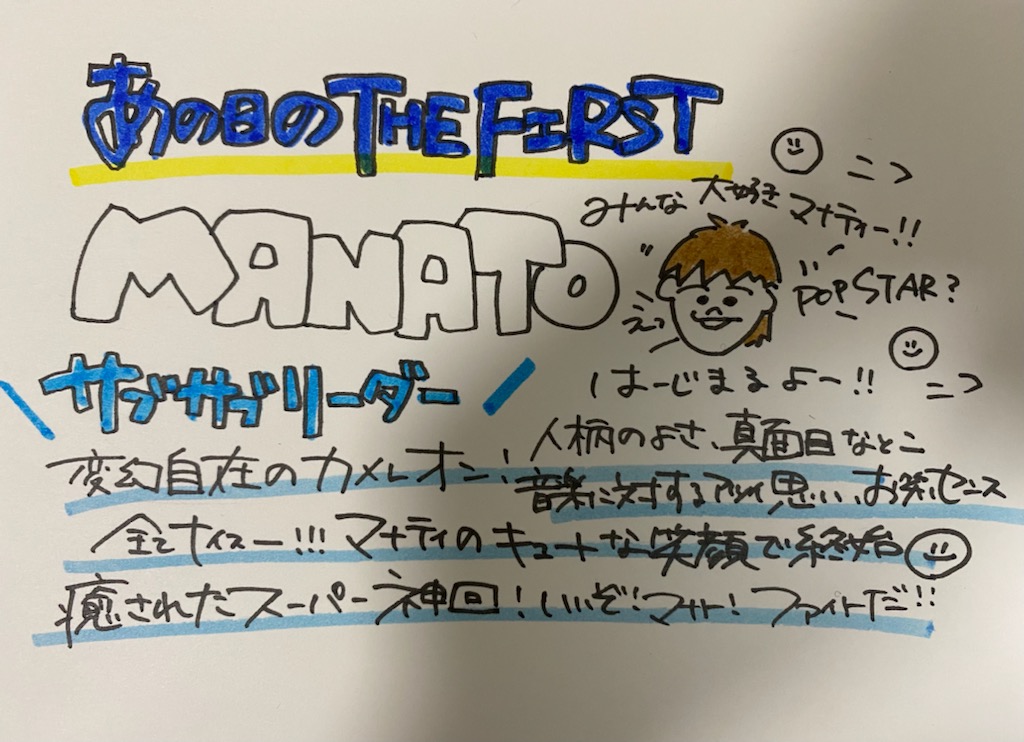 あの日のTHE FIRST
ニコ
みんな大好きマナティー!!
MANATO
えっ
POPSTAR?
サブサブリーダー
はーじまるよー!!
ニコ
変幻自在のカメレオン!
人柄のよさ、真面目なとこ
音楽に対する熱い思い、お笑いセンス
全てナイスー!!!マナティのキュートな笑顔で終始
癒されたスーパー神回!いいぞ!マナト!ファイトだ!!